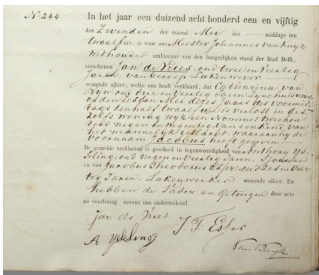 N° 244
In het jaar een duizend acht honderd een en vijftig
den Zevenden der maand Mei des middags ten
twaalf ure, is voor ons Meester Johannes van Kuyk
Wethouder ambtenaar van den burgerlijken stand der Stad Delft,
verschenen Jan de Vries oud twee en veertig
jaren, van beroep Lakenwever
wonende alhier, welke ons heeft verklaard, dat Catharina van
oud drie en veertig jaren, zijne huisvrouw
op den zesden Mei dezes jaars des voormid-
dags ten half twaalf ure is bevallen in des-
zelfs woning wijk een Nommer
van een kind van
het mannelijk geslacht, waaraan hij de
voornaam Jacobus heeft gegeven
De gemelde verklaring is geschied in tegenwoordigheid van Anthony IJs-
seling oud negen en veertig jaren,
en van Jacobus Theodorus Esser oud
tig Jaren Lakenwerker wonende alhier. En
hebben de Vader en Getuigen deze acte
na voorlezing nevens ons onderteekend.
Jan de Vries
J. T. Esser
A IJsseling
van Kuyk